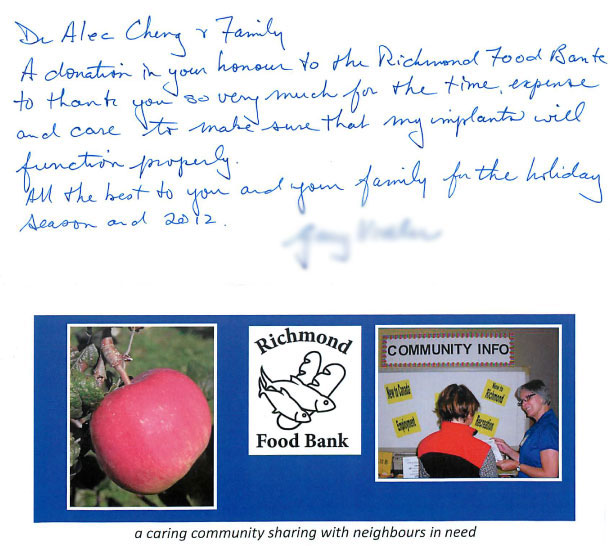 Dr Alec Cheng & Family
A donation in your honour to the Richmond Food Bank
to thank you so very much for the time, expense
and care to make sure that my implants will
function properly.
All the best to you and your family for the holiday
season and 2012.
Richmond
Food Bank
COMMUNITY INFO
New to Canada
Move to Richmond
Employment
Recreation
a caring community sharing with neighbours in need